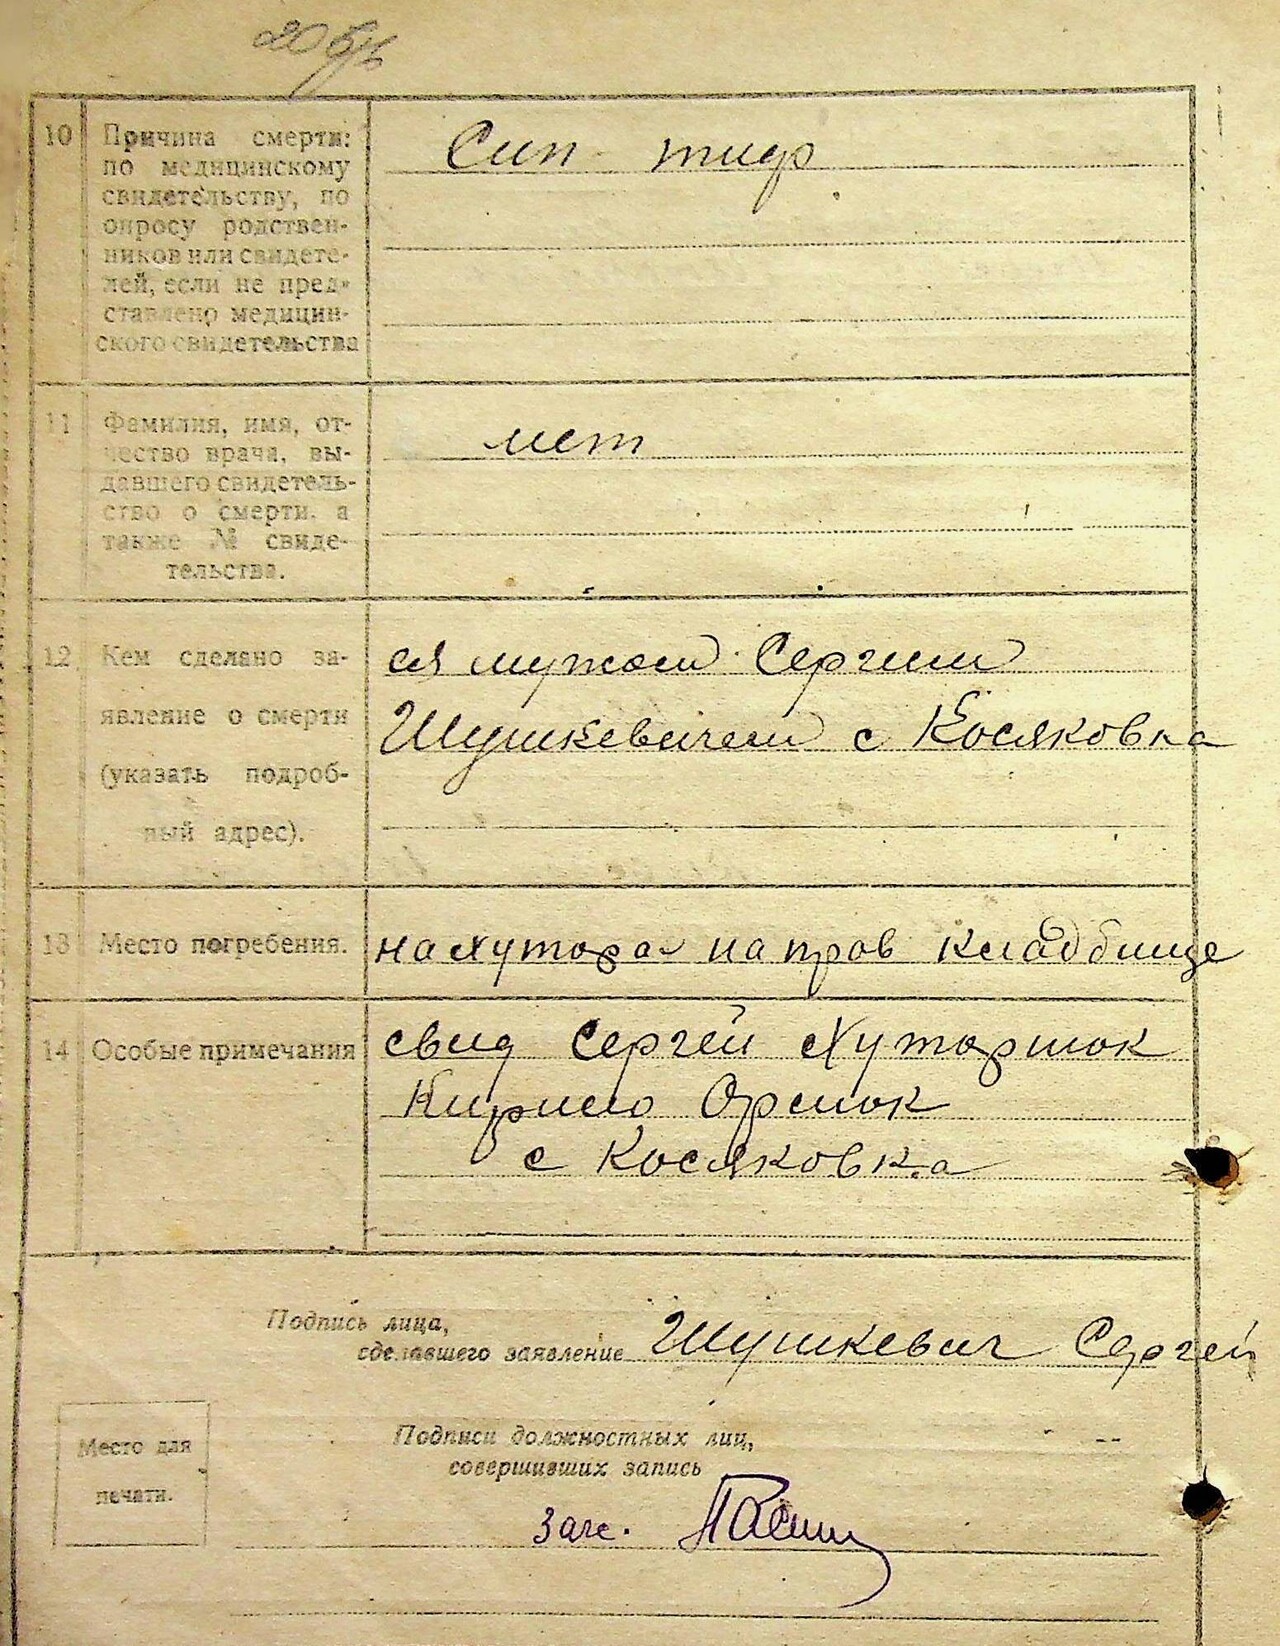 10 Причина смерти: Сип тиф
по медицинскому
свидетельству, по
опросу родствен-
ников или свидете-
лей, если не пред-
ставлено медицин-
ского свидетельства
11 Фамилия, имя, от- нет
чество врача, вы-
давшего свидетель-
ство о смерти, а
также № свиде-
тельства.
12 Кем сделано за- ея мужом Сергием
явление о смерти Шушкевичем с Косяковка
(указать подроб-
ный адрес).
13 Место погребения. на хуторах на пров кладбище
14 Особые примечания свид Сергей Хуторнюк
Кирило
с Косяковка
Подпись лица,
сделавшего заявление Шушкевич Сергей
Место для
печати.
Подписи должностных лиц,
совершивших запись